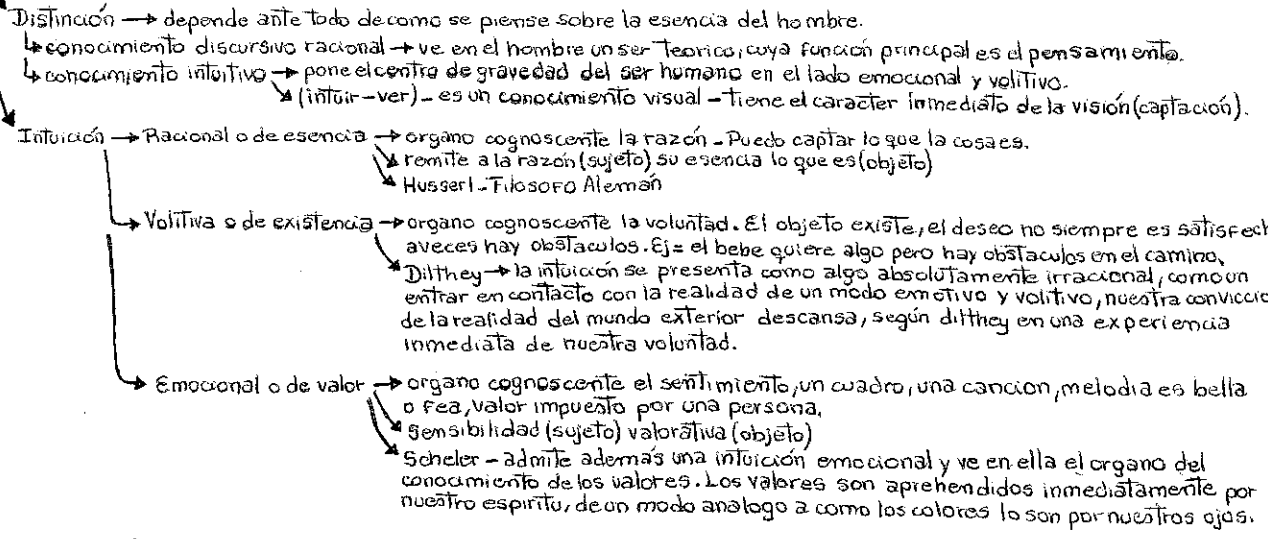 Distinción → depende ante todo de como se piense sobre la esencia del hombre.
↳ conocimiento discursivo racional → ve en el hombre un ser teorico, cuya función principal es el pensamiento.
↳ conocimiento intuitivo → pone el centro de gravedad del ser humano en el lado emocional y volitivo.
↘ (intuir-ver) - es un conocimiento visual - tiene el caracter inmediato de la visión (captación).
Intuición → Racional o de esencia → organo cognoscente la razón - Puedo captar lo que la cosa es.
↘ remite a la razón (sujeto) su esencia lo que es (objeto)
↘ Husserl - Filosofo Alemán
→ Volitiva o de existencia → organo cognoscente la voluntad. El objeto existe, el deseo no siempre es satisfech
aveces hay obstaculos. Ej= el bebe quiere algo pero hay obstaculos en el camino,
↘ Dilthey → la intuición se presenta como algo absolutamente irracional, como un
entrar en contacto con la realidad de un modo emotivo y volitivo, nuestra convicció
de la realidad del mundo exterior descansa, según dilthey en una experiencia
inmediata de nuestra voluntad.
→ Emocional o de valor → organo cognoscente el sentimiento, un cuadro, una cancion, melodia es bella
o fea, valor impuesto por una persona.
↘ sensibilidad (sujeto) valorativa (objeto)
↘ Scheler - admite además una intuición emocional y ve en ella el organo del
conocimiento de los valores. Los valores son aprehendidos inmediatamente por
nuestro espiritu, de un modo analogo a como los colores lo son por nuestros ojos.